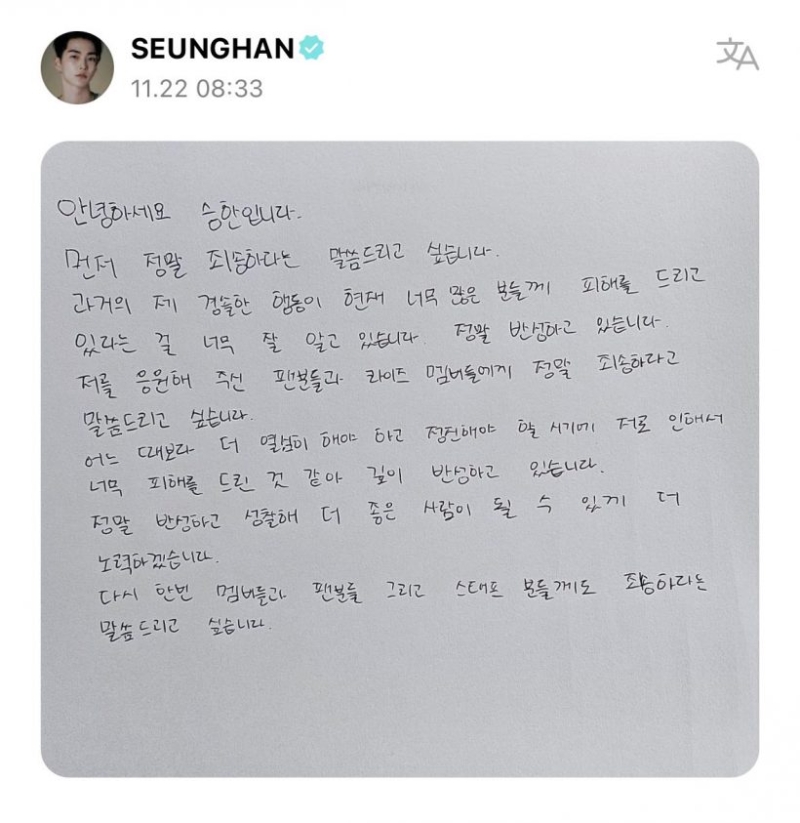 SEUNGHAN
11.22 08:33
안녕하세요 승한입니다.
먼저 정말 죄송하다는 말씀드리고 싶습니다.
과거의 제 경솔한 행동이 현재 너무 많은 분들께 피해를 드리고
있다는 걸 너무 잘 알고 있습니다. 정말 반성하고 있습니다.
저를 응원해 주신 팬분들과 라이즈 멤버들에게 정말 죄송하다고
말씀드리고 싶습니다.
어느 때보다 더 열심히 해야 하고 정진해야 할 시기에 저로 인해서
너무 피해를 드린 것 같아 깊이 반성하고 있습니다.
정말 반성하고 성찰해 더 좋은 사람이 될 수 있게 더
노력하겠습니다.
다시 한번 멤버들과 팬분들 그리고 스태프 분들께도 죄송하다는
말씀드리고 싶습니다.